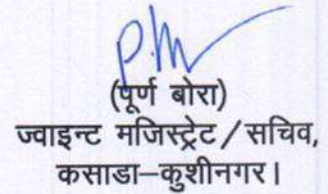 (पूर्ण बोरा)
ज्वाइन्ट मजिस्ट्रेट/सचिव,
कसाडा–कुशीनगर।